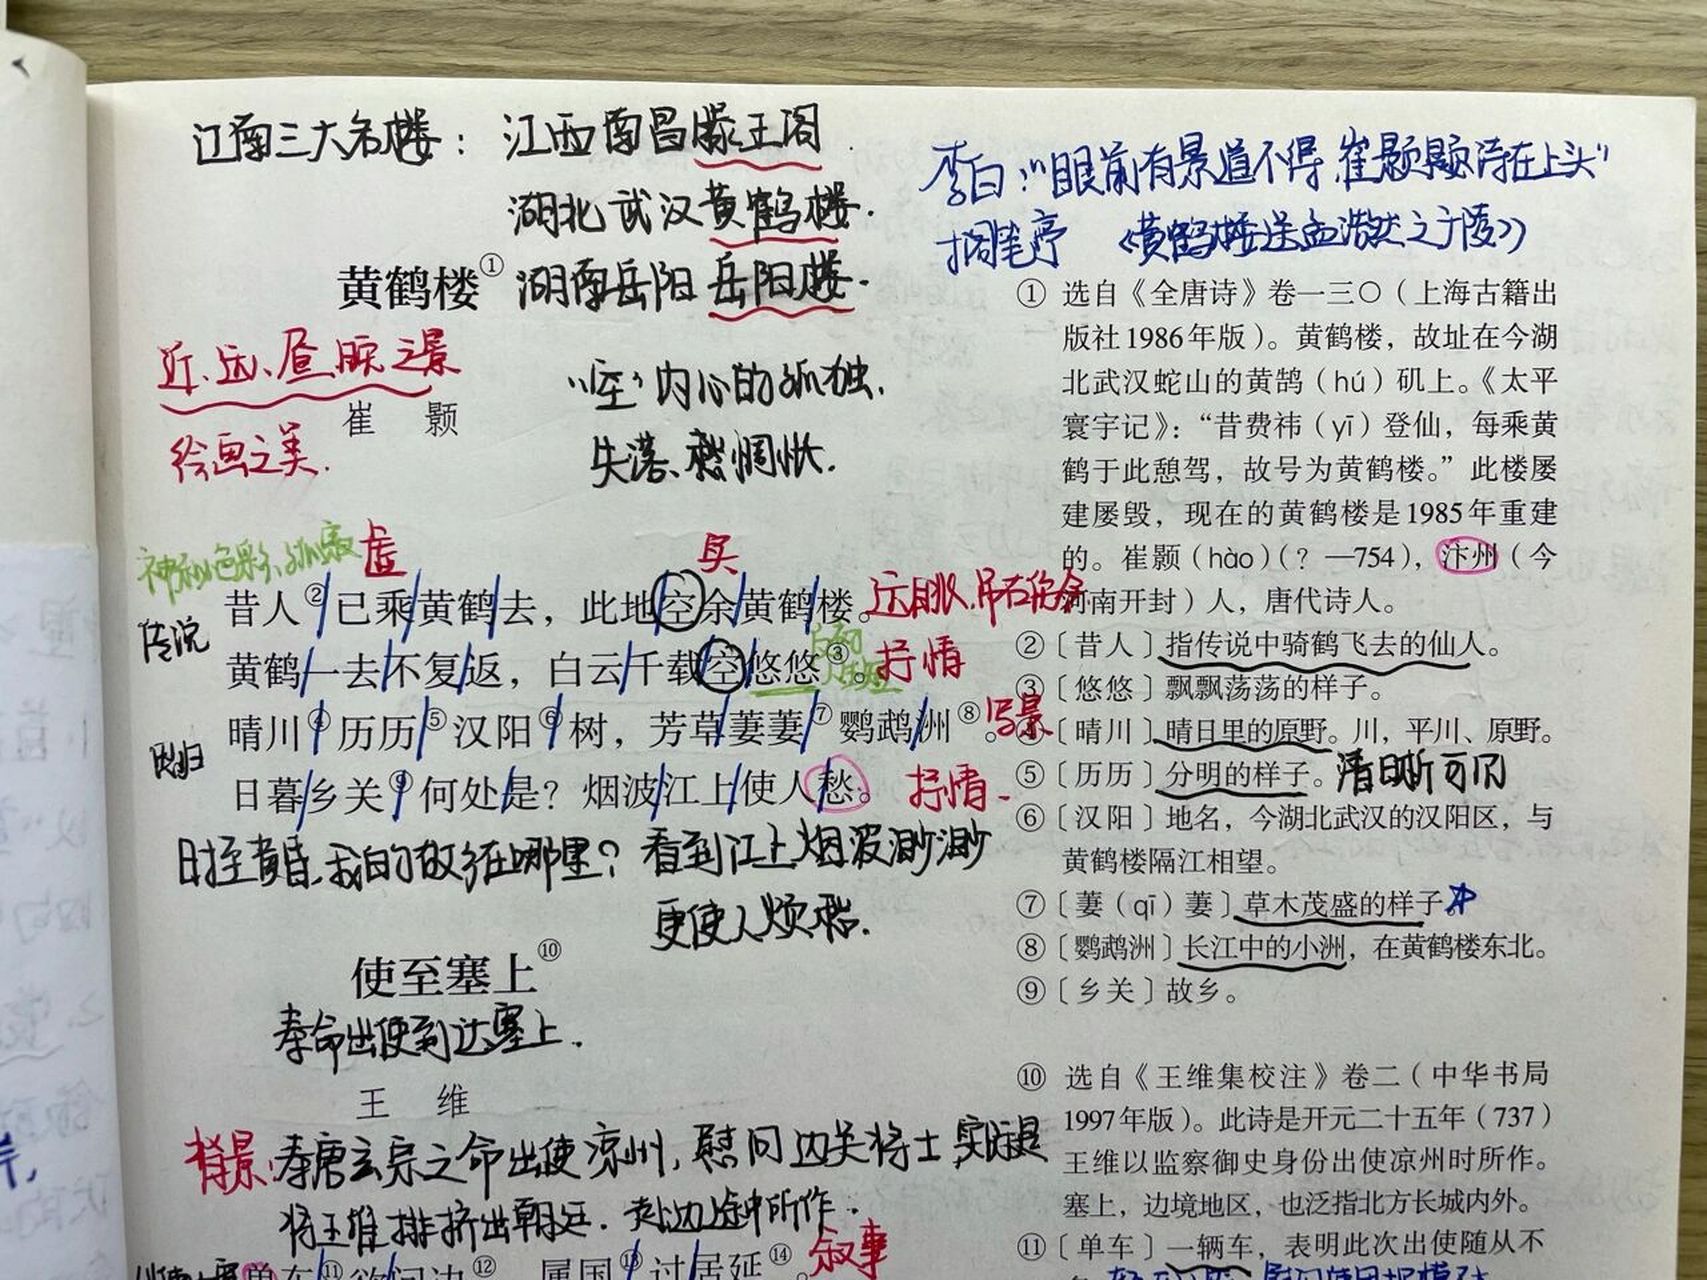 江南三大名楼：江西南昌滕王阁.
湖北武汉黄鹤楼.
黄鹤楼① 湖南岳阳岳阳楼.
近、远、昼、暝之景
崔 颢
绘画之美.
“空”内心的孤独.
失落、愁惆怅.
神秘色彩、孤寂
虚
实
昔人②已乘黄鹤去，此地空余黄鹤楼。
远眺.吊古伤今
传说
黄鹤一去不复返，白云千载空悠悠③。
抒情
晴川④历历⑤汉阳⑥树，芳草萋萋⑦鹦鹉洲⑧。
写景
思归
日暮乡关⑨何处是？烟波江上使人愁。
抒情.
时至黄昏.我的故乡在哪里？看到江上烟波渺渺
更使人烦愁.
使至塞上⑩
奉命出使到达塞上.
王 维
背景:奉唐玄宗之命出使凉州,慰问边关将士 实际是
将王维排挤出朝廷.赴边途中所作.
单车⑪欲问边⑫ 属国⑬过居延⑭。
叙事
李白:“眼前有景道不得,崔颢题诗在上头”
搁笔亭 《黄鹤楼送孟浩然之广陵》
① 选自《全唐诗》卷一三〇（上海古籍出
版社1986年版）。黄鹤楼，故址在今湖
北武汉蛇山的黄鹄（hú）矶上。《太平
寰宇记》：“昔费祎（yī）登仙，每乘黄
鹤于此憩驾，故号为黄鹤楼。”此楼屡
建屡毁，现在的黄鹤楼是1985年重建
的。崔颢（hào）（？—754），汴州（今
河南开封）人，唐代诗人。
②〔昔人〕指传说中骑鹤飞去的仙人。
③〔悠悠〕飘飘荡荡的样子。
④〔晴川〕晴日里的原野。川，平川、原野。
⑤〔历历〕分明的样子。清晰可见
⑥〔汉阳〕地名，今湖北武汉的汉阳区，与
黄鹤楼隔江相望。
⑦〔萋（qī）萋〕草木茂盛的样子。
⑧〔鹦鹉洲〕长江中的小洲，在黄鹤楼东北。
⑨〔乡关〕故乡。
⑩ 选自《王维集校注》卷二（中华书局
1997年版）。此诗是开元二十五年（737）
王维以监察御史身份出使凉州时所作。
塞上，边境地区，也泛指北方长城内外。
⑪〔单车〕一辆车，表明此次出使随从不